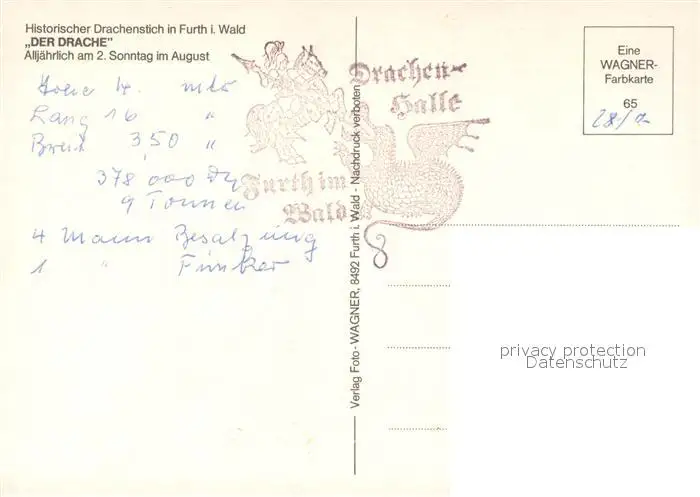 Historischer Drachenstich in Furth i. Wald
„DER DRACHE"
Alljährlich am 2. Sonntag im August
Höhe 4. mtr
Lang 16 "
Breit 3,50 "
378 000 DM
9 Tonnen
4 Mann Besatzung
1 " Funker
Drachen-
Halle
Furth im
Wald
Verlag Foto-WAGNER, 8492 Furth i. Wald - Nachdruck verboten
Eine
WAGNER-
Farbkarte
65
privacy protection
Datenschutz